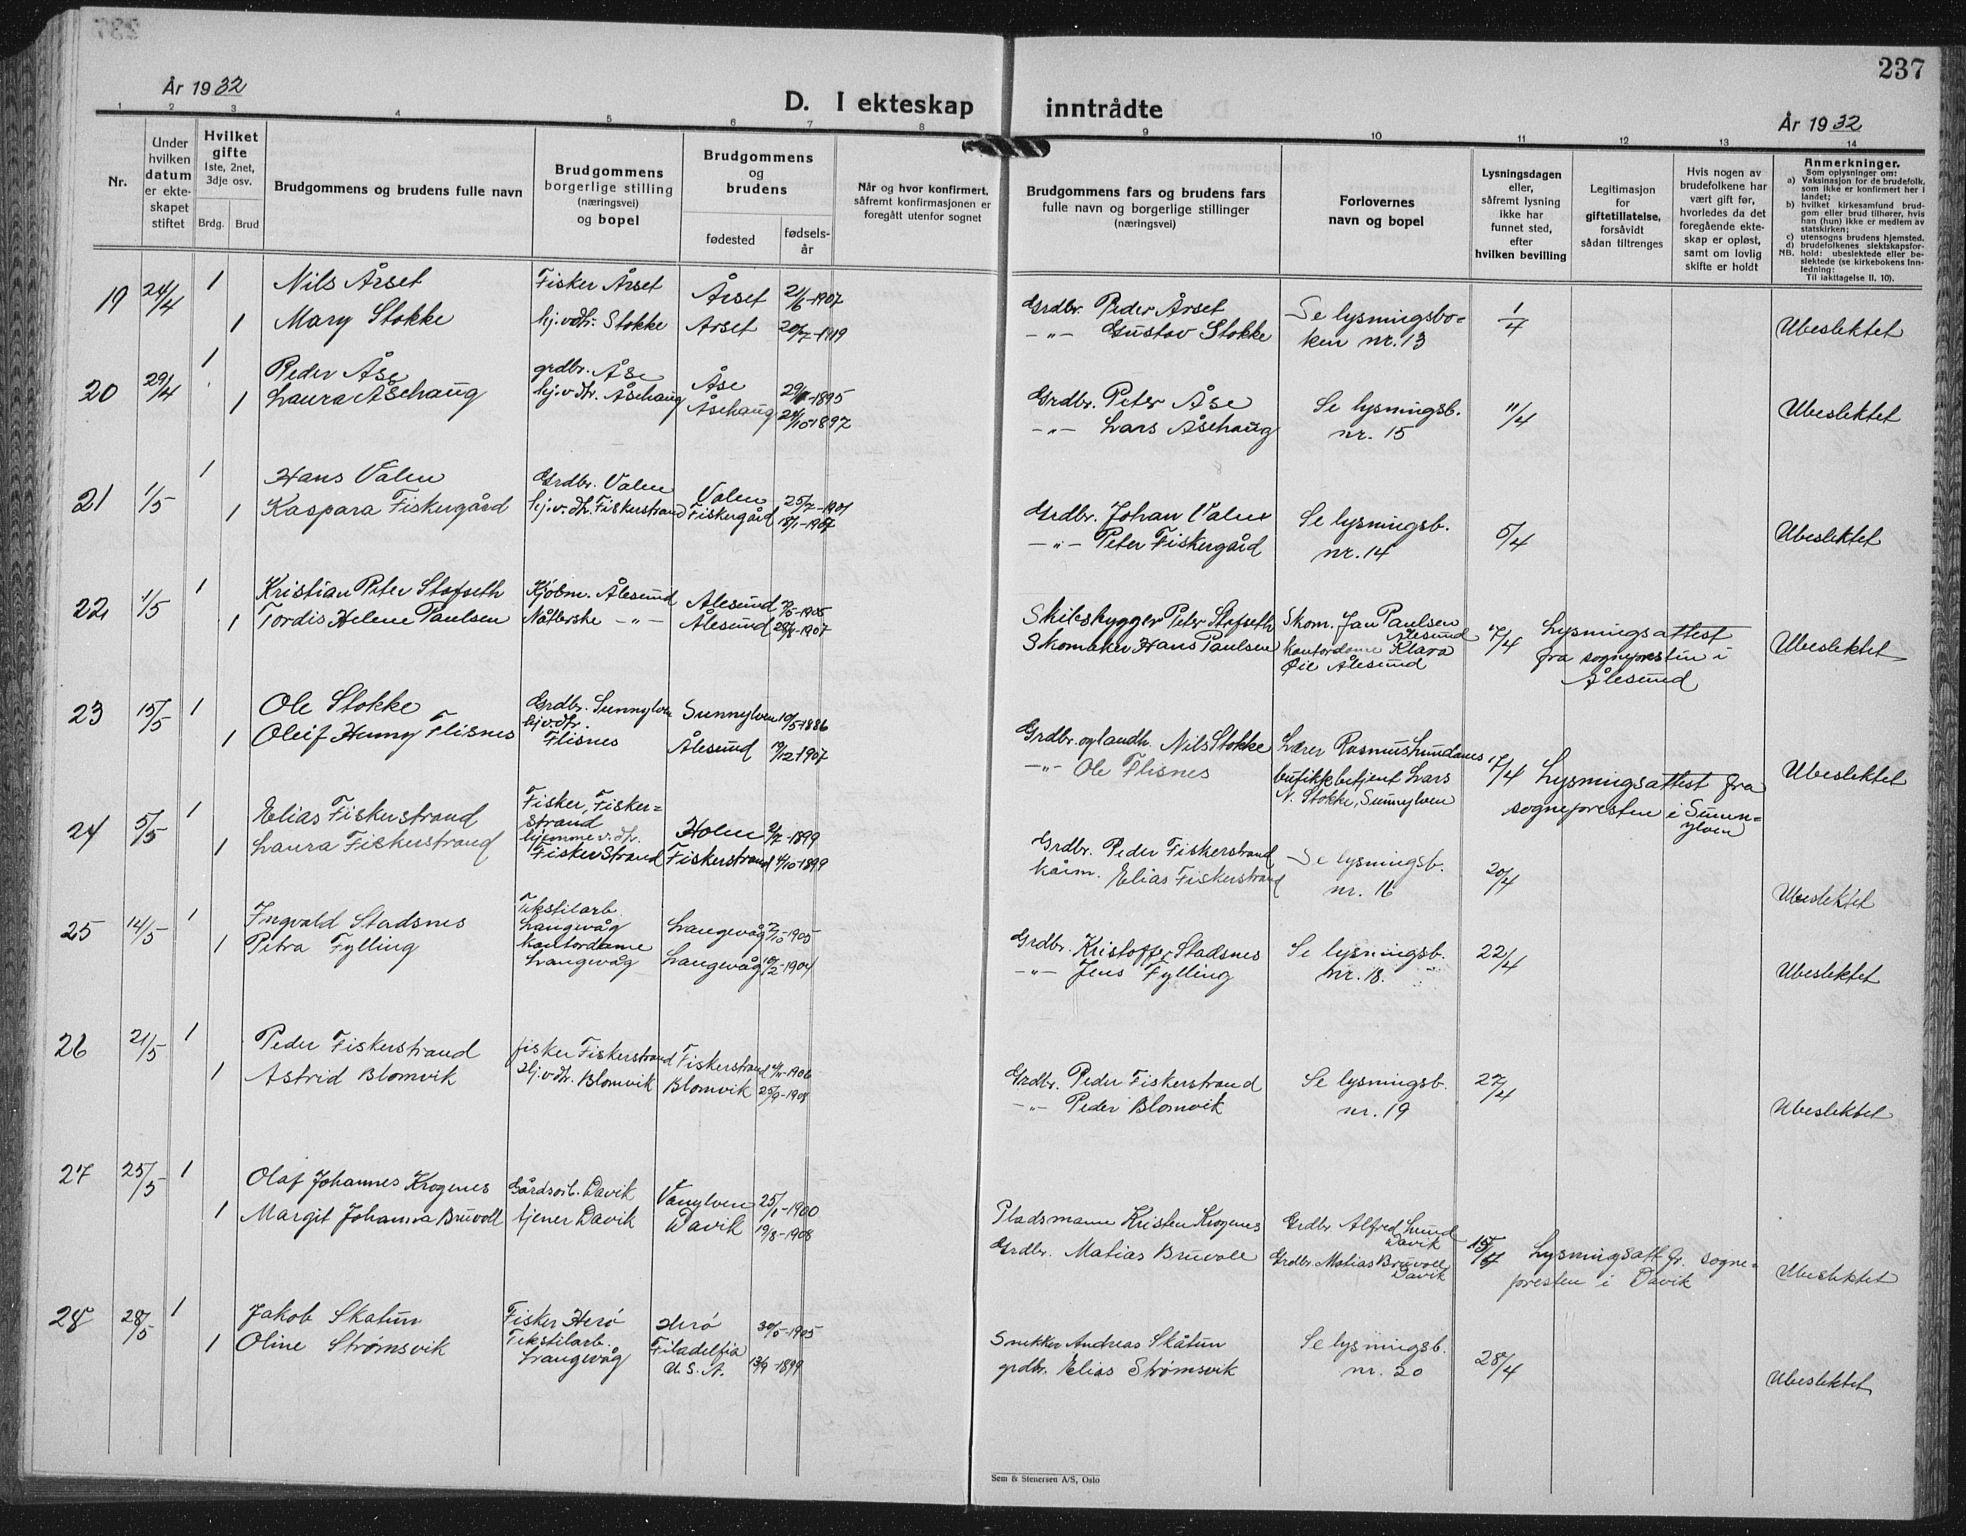 237
År 1932
D. I ekteskap inntrådte
År 1932
1 2 3 4 5 6 7 8 9 10 11 12 13 14
Nr.
Under hvilken datum er ekteskapet stiftet
Hvilket gifte
1ste, 2net, 3dje osv.
Brdg. Brud
Brudgommens og brudens fulle navn
Brudgommens borgerlige stilling (næringsvei) og bopel
Brudgommens og brudens
fødested
fødselsår
Når og hvor konfirmert, såfremt konfirmasjonen er foregått utenfor sognet
Brudgommens fars og brudens fars fulle navn og borgerlige stillinger (næringsvei)
Forlovernes navn og bopel
Lysningsdagen eller, såfremt lysning ikke har funnet sted, efter hvilken bevilling
Legitimasjon for giftetillatelse, forsåvidt sådan tiltrenges
Hvis nogen av brudefolkene har vært gift før, hvorledes da det foregående ekteskap er opløst, samt om lovlig skifte er holdt
Anmerkninger.
Som oplysninger om:
a) Vaksinasjon for de brudefolk, som ikke er konfirmert her i landet;
b) hvilket kirkesamfund brudgom eller brud tilhører, hvis han (hun) ikke er medlem av statskirken;
c) utensogns brudens hjemsted.
d) brudefolkenes slektskapsforhold: ubeslektede eller beslektede (se kirkebokens Innledning:
NB.
Til iakttagelse II. 10).
19 24/4 1 Nils Årset Fisker Årset Årset 21/6-1907 Grdbr. Peder Årset Se lysningsbo= 1/4 Ubeslektet
1 Mary Stokke hj.v.dtr. Stokke Årset 20/7-1919 -"- Gustav Stokke ken nr. 13
20 29/4 1 Peder Åse grdbr. Åse Åse 1895 Grdbr. Peter Åse Se lysningsb. 11/4 Ubeslektet
1 Laura Åsehaug hj.v.dtr. Åsehaug Åsehaug 24/10-1897 -"- Lars Åsehaug nr. 15
21 1/5 1 Hans Valen Grdbr. Valen Valen 25/7-1901 Grdbr. Johan Valen Se lysningsb. 5/4 Ubeslektet
1 Kaspara Fiskergård hj.v.dtr. Fiskerstrand Fiskergård 1907 -"- Peter Fiskergård nr. 14
22 1/5 1 Kristian Peter Stafseth Kjøbm. Ålesund Ålesund 1905 Skibsbygger Peter Stafseth Skom. Jan Paulsen Ålesund 17/4 Lysningsattest Ubeslektet
1 Tordis Helene Paulsen Nåtlerske -"- Ålesund 28/8-1907 Skomaker Hans Paulsen kontordame Klara Øie Ålesund fra sognepresten i Ålesund
23 15/5 1 Ole Stokke Grdbr. Sunnylven Sunnylven 10/5-1886 Grdbr. og landh. Nils Stokke Lærer Rasmus Lundanes 17/4 Lysningsattest fra Ubeslektet
1 Oleif Henny Flisnes hj.v.dtr. Flisnes Ålesund 19/12-1907 -"- Ole Flisnes butikkbetjent Lars N. Stokke, Sunnylven sognepresten i Sunn=ylven
24 5/5 1 Elias Fiskerstrand Fisker, Fisker=strand Holen 2/7-1899 Grdbr. Peder Fiskerstrand Se lysningsb. 20/4 Ubeslektet
1 Laura Fiskerstrand hjemmev.dtr. Fiskerstrand Fiskerstrand 4/10-1899 kårm. Elias Fiskerstrand nr. 16
25 14/5 1 Ingvald Stadsnes Tekstilarb. Langevåg Langevåg 2/10-1905 Grdbr. Kristoffer Stadsnes Se lysningsb. 22/4 Ubeslektet
1 Petra Fylling kontordame Langevåg Langevåg 10/2-1904 -"- Jens Fylling nr. 18.
26 21/5 1 Peder Fiskerstrand fisker Fiskerstrand Fiskerstrand 1906 Grdbr. Peder Fiskerstrand Se lysningsb. 27/4 Ubeslektet
1 Astrid Blomvik Hj.v.dtr. Blomvik Blomvik 25/9-1908 -"- Peder Blomvik nr. 19
27 25/5 1 Olaf Johannes Krogenes Gårdsarb. Davik Vanylven 25/1-1900 Pladsmann Kristen Krogenes Grdbr. Alfred Lund Davik Lysningsatt. fr. sogne= Ubeslektet
1 Margit Johanna Bruvoll tjener Davik Davik 19/8-1908 Grdbr. Matias Bruvoll Grdbr. Matias Bruvoll Davik presten i Davik
28 28/5 1 Jakob Skatun Fisker Herø Herø 30/5-1905 Snekker Andreas Skåtun Se lysningsb. 28/4 Ubeslektet
1 Oline Strømsvik Tekstilarb. Langevåg Filadelfia U.S.A. 13/9-1899 grdbr. Elias Strømsvik nr. 20
Sem & Stenersen A/S, Oslo